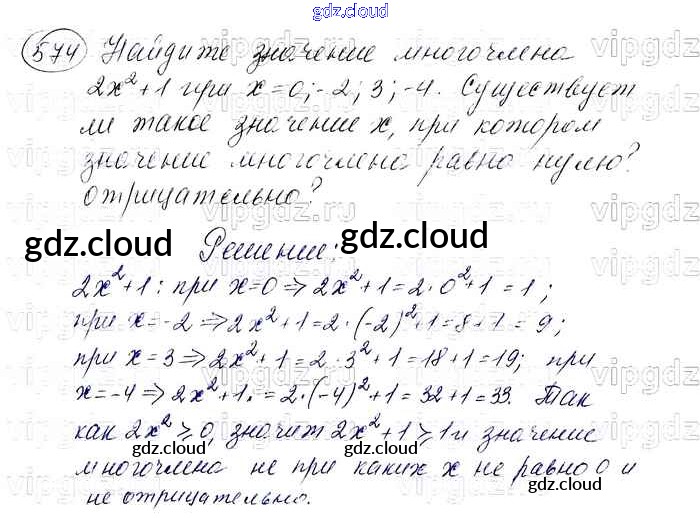 gdz.cloud
574 Найдите значение многочлена
2x²+1 при x=0; -2; 3; -4. Существует
ли такое значение x, при котором
значение многочлена равно нулю?
отрицательно?
gdz.cloud Решение: gdz.cloud
2x²+1: при x=0 ⇒ 2x²+1=2·0²+1=1;
при x=-2 ⇒ 2x²+1=2·(-2)²+1=8+1=9;
при x=3 ⇒ 2x²+1=2·3²+1=18+1=19; при
x=-4 ⇒ 2x²+1.=2·(-4)²+1=32+1=33. Так
как 2x²⩾0, значит 2x²+1⩾1 и значение
многочлена не при каких x не равно 0 и
не отрицательно.
gdz.cloud
gdz.cloud
gdz.cloud
gdz.cloud
vipgdz.ru